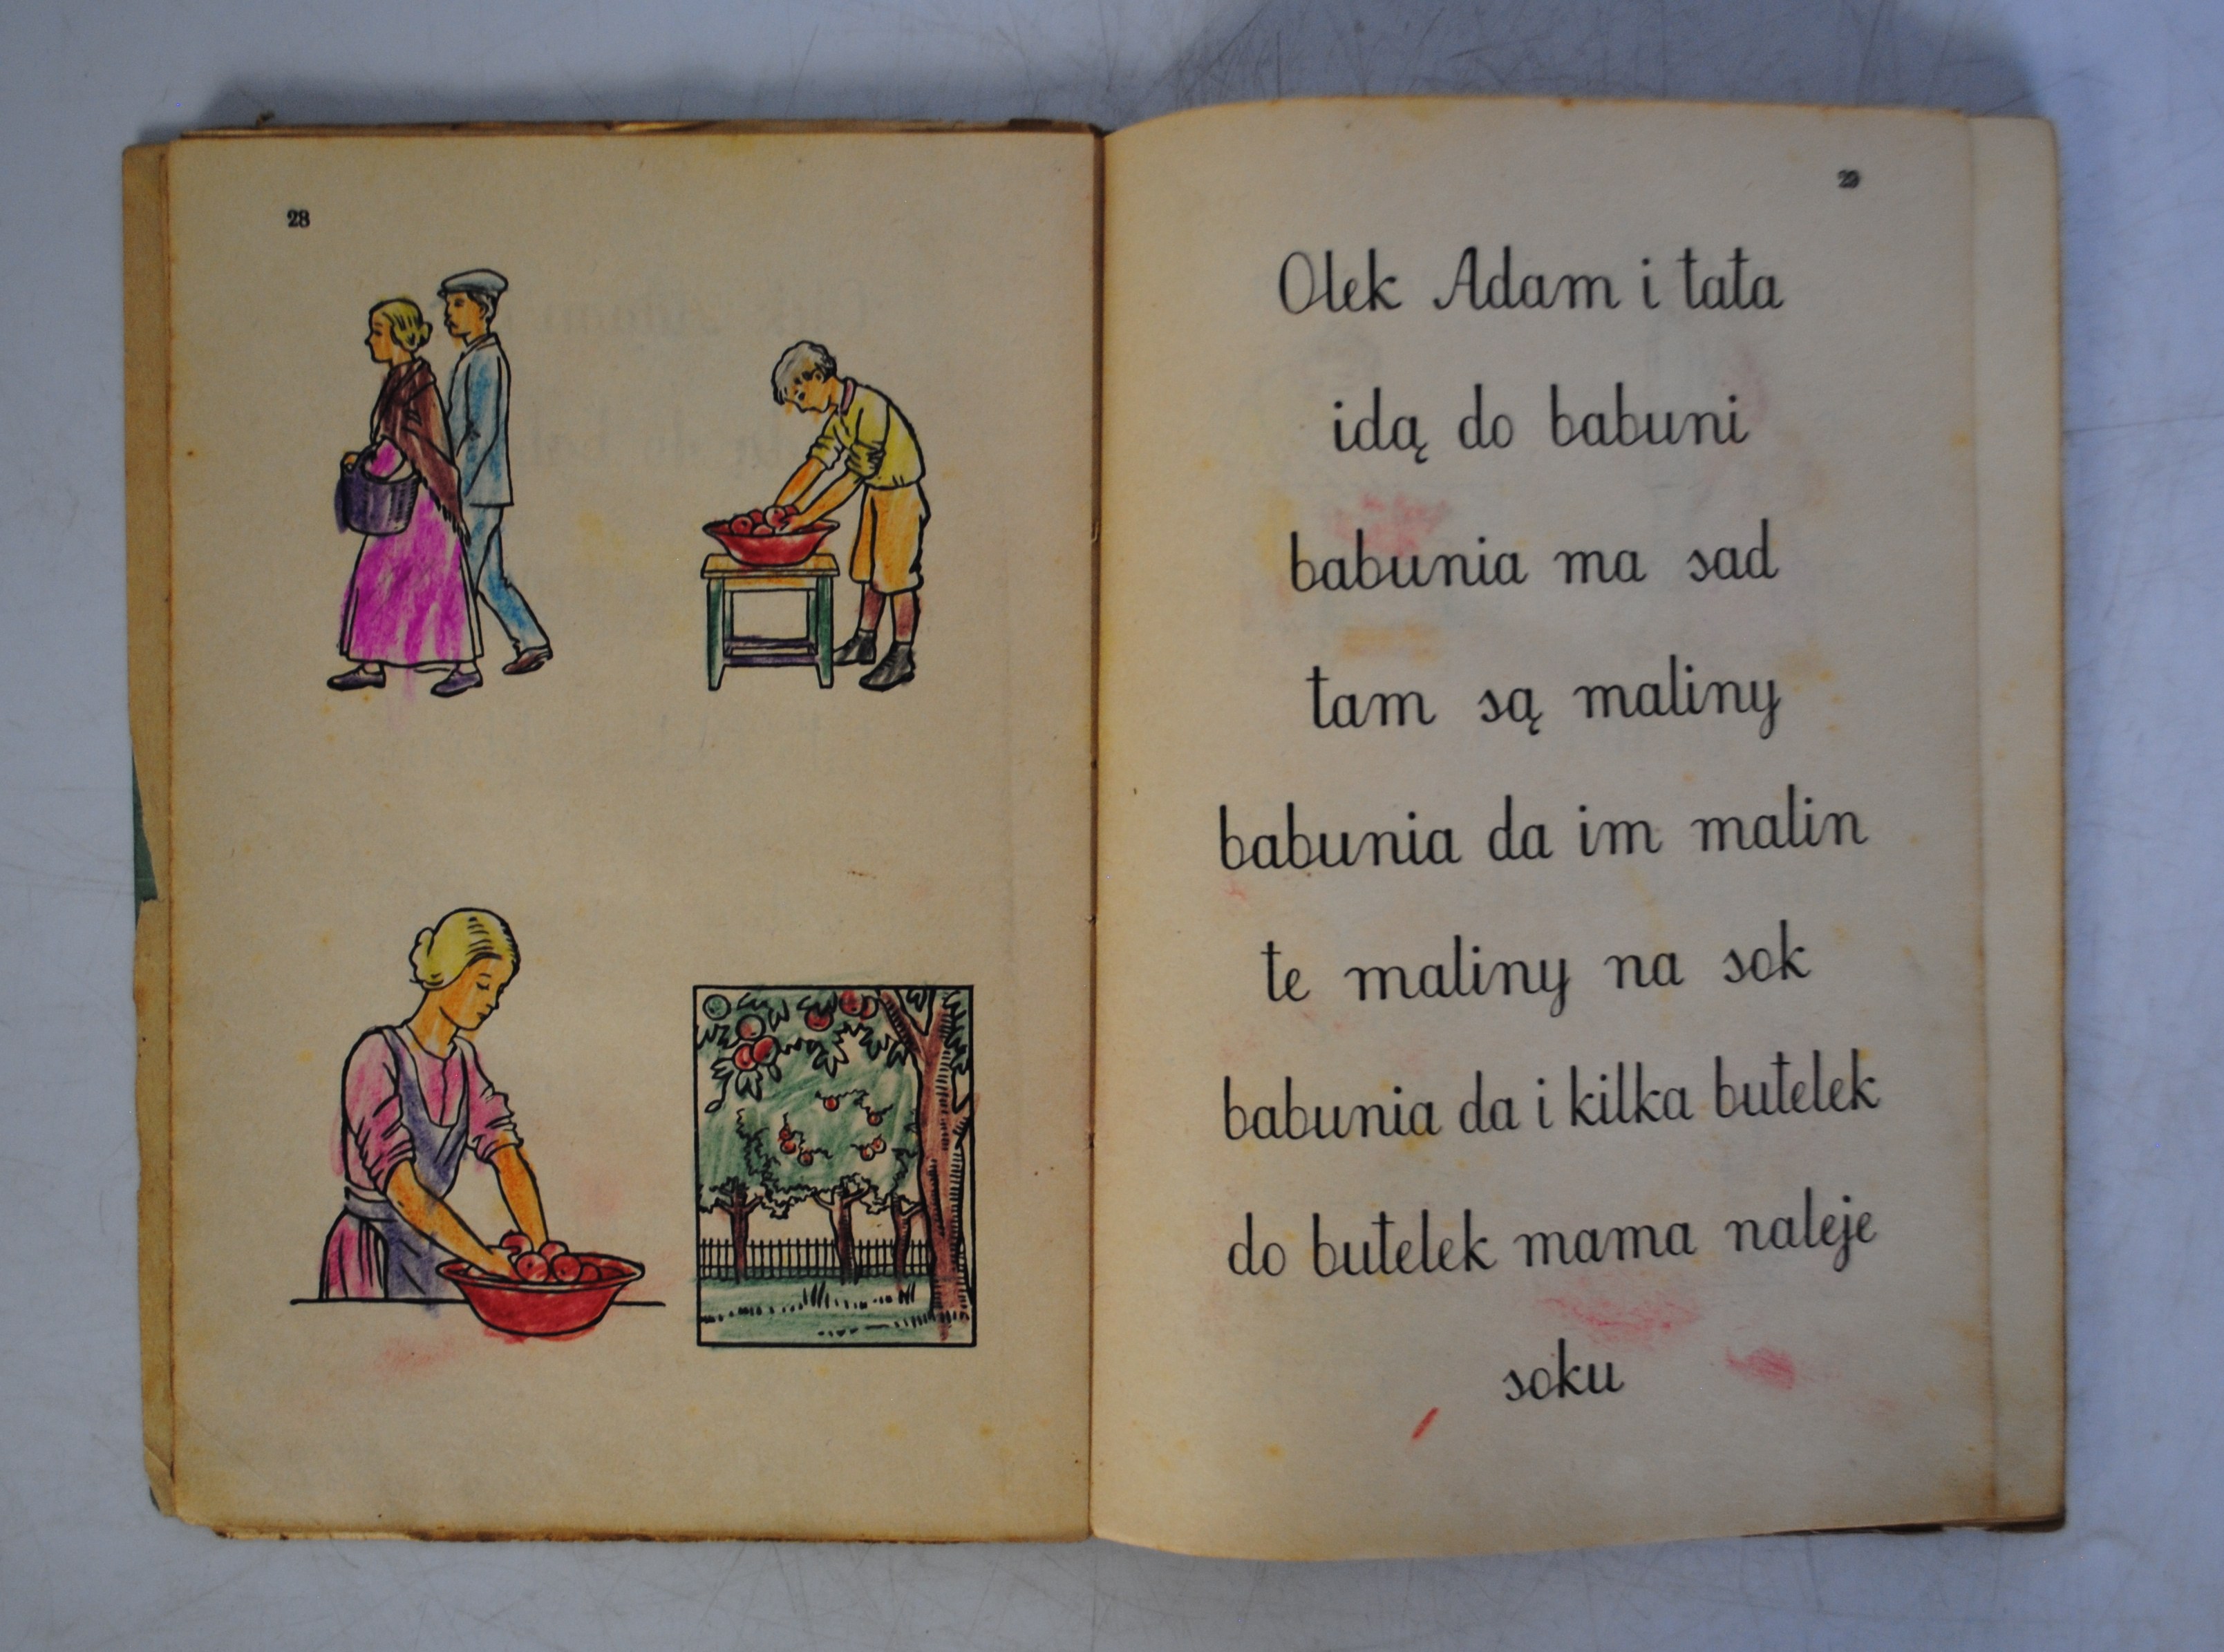 28
29
Olek Adam i tata
idą do babuni
babunia ma sad
tam są maliny
babunia da im malin
te maliny na sok
babunia da i kilka butelek
do butelek mama naleje
soku